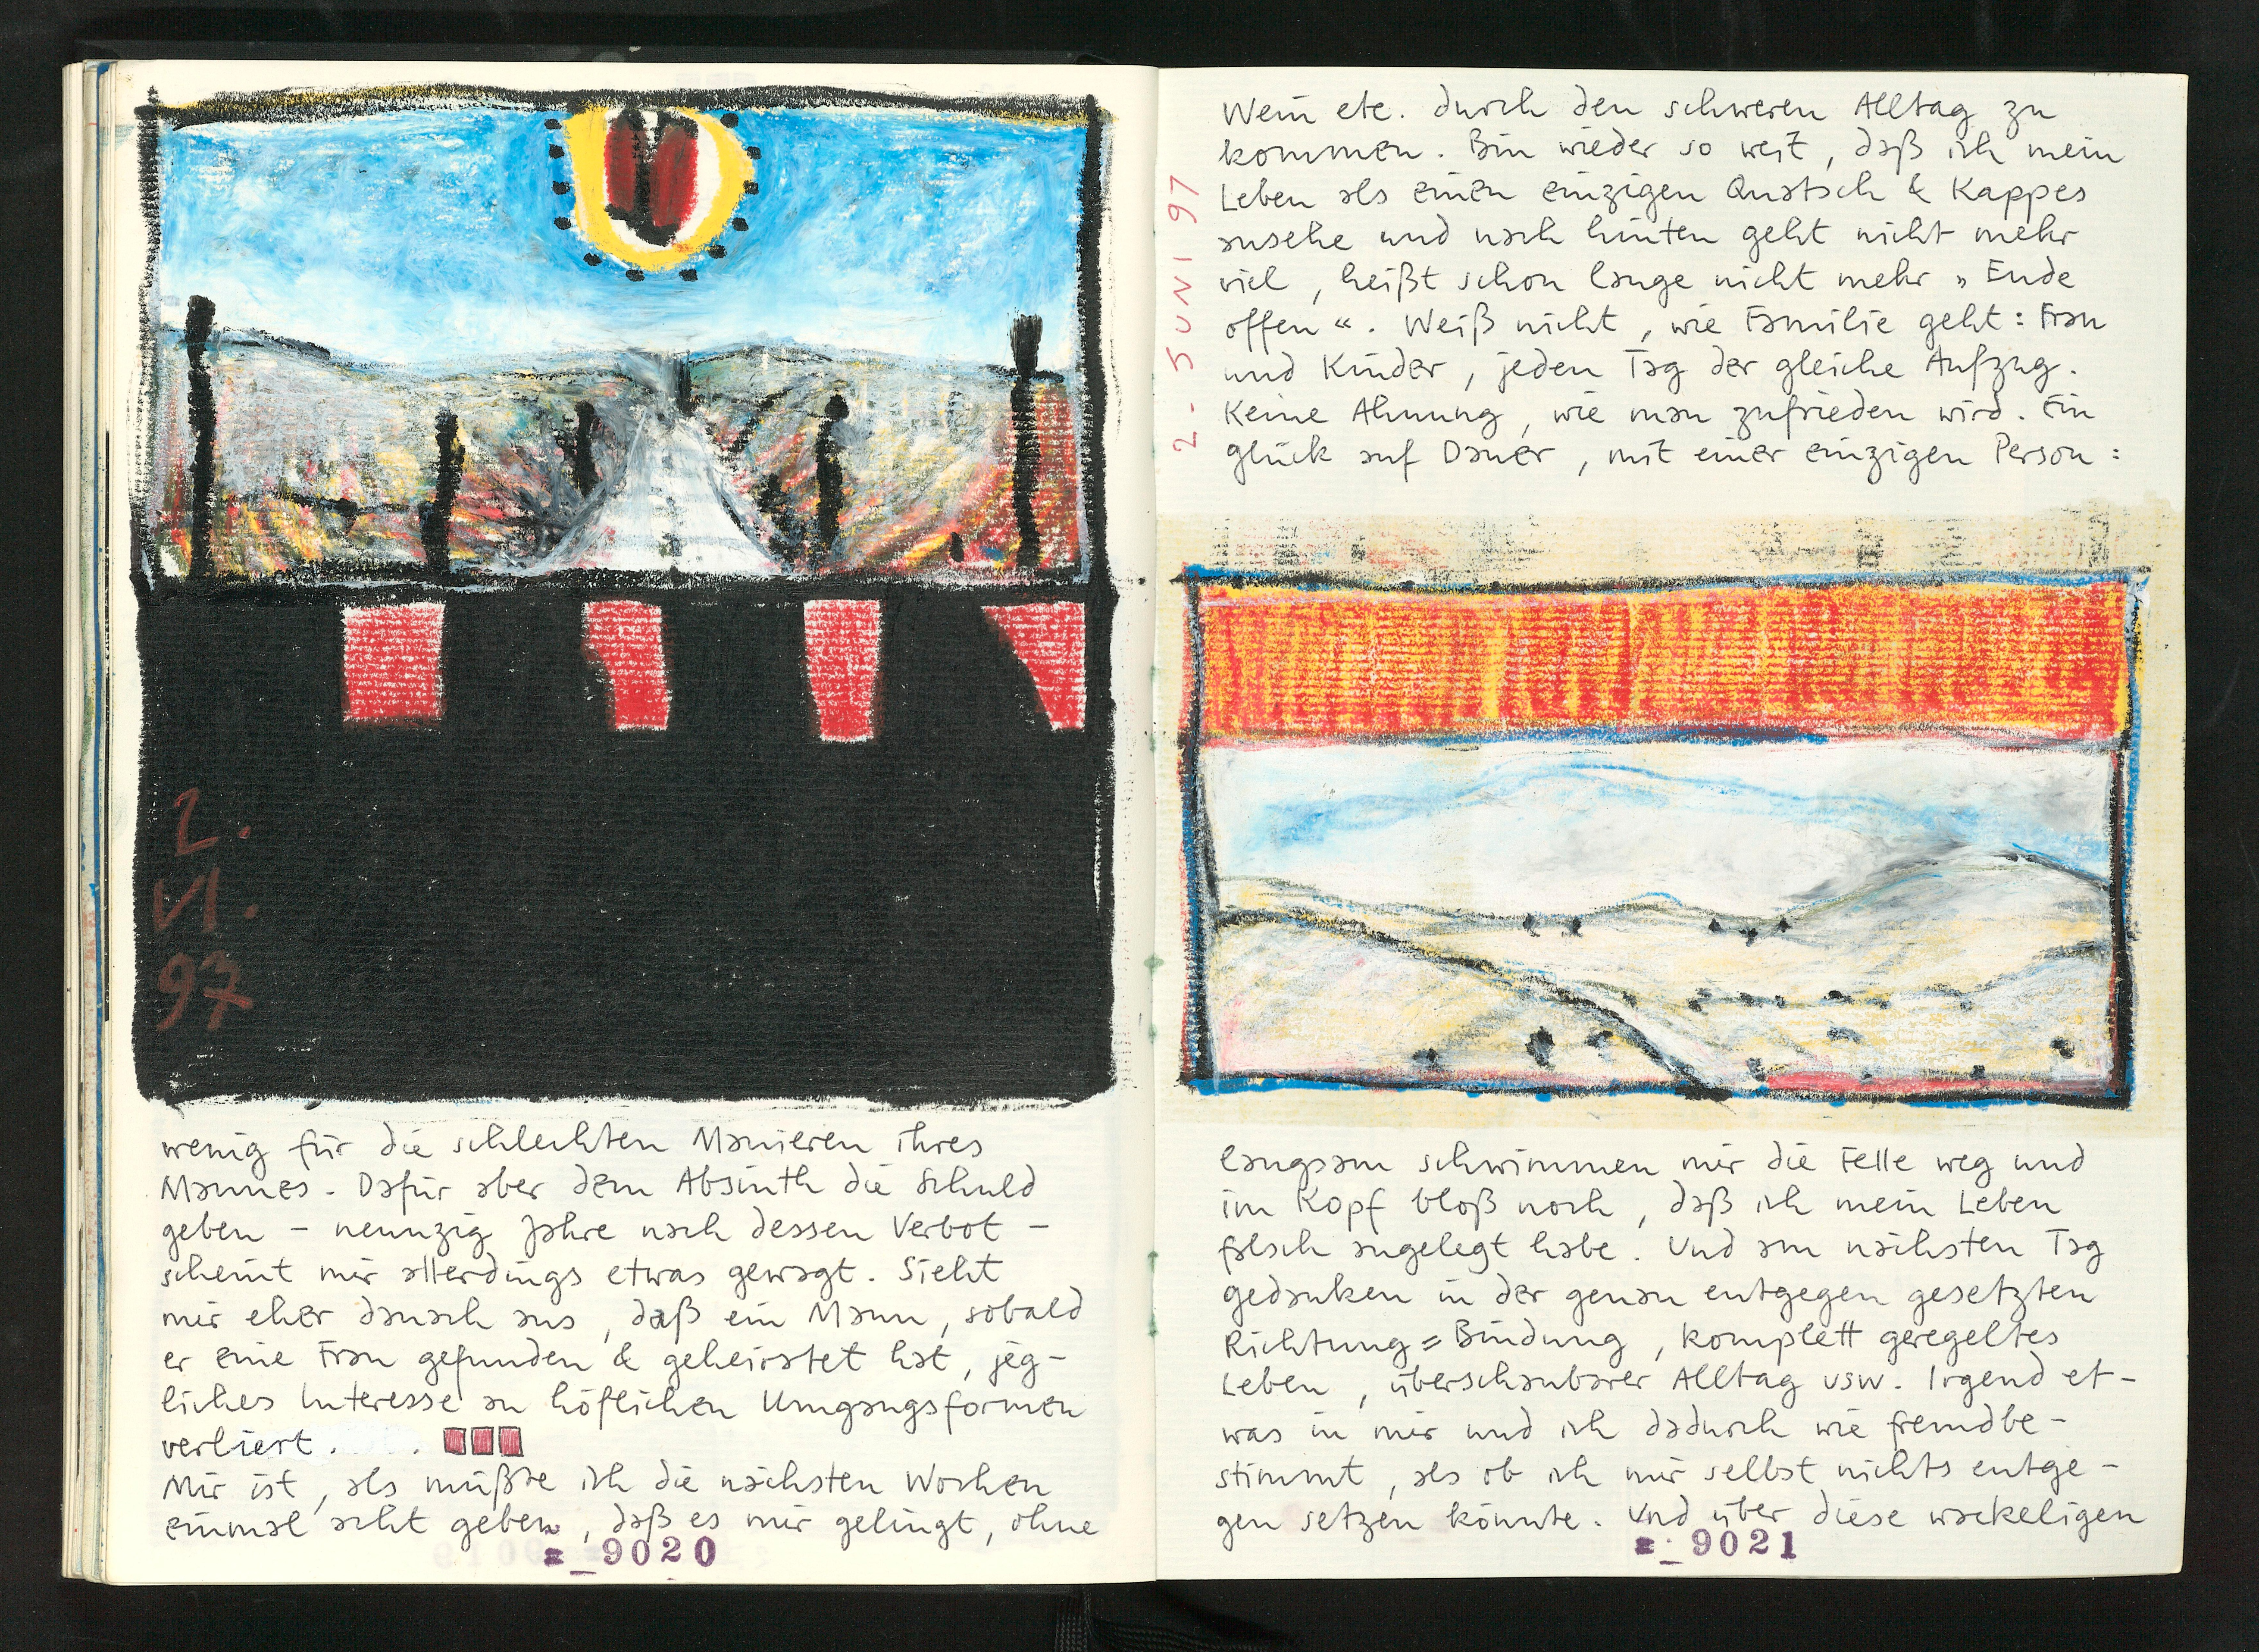 2.
VI.
97
wenig für die schlechten Manieren ihres
Mannes. Dafür aber dem Absinth die Schuld
geben – neunzig Jahre nach dessen Verbot –
scheint mir allerdings etwas gewagt. Sieht
mir eher danach aus, daß ein Mann, sobald
er eine Frau gefunden & geheiratet hat, jeg-
liches Interesse an höflichen Umgangsformen
verliert.
Mir ist, als müßte ich die nächsten Wochen
einmal acht geben, daß es mir gelingt, ohne
=_9020
Wein etc. durch den schweren Alltag zu
kommen. Bin wieder so weit, daß ich mein
Leben als einen einzigen Quatsch & Kappes
ansehe und nach hinten geht nicht mehr
viel, heißt schon lange nicht mehr „Ende
offen“. Weiß nicht, wie Familie geht: Frau
und Kinder, jeden Tag der gleiche Aufzug.
Keine Ahnung, wie man zufrieden wird. Ein
Glück auf Dauer, mit einer einzigen Person:
2-JUNI 97
langsam schwimmen mir die Felle weg und
im Kopf bloß noch, daß ich mein Leben
falsch angelegt habe. Und am nächsten Tag
Gedanken in der genau entgegen gesetzten
Richtung = Bindung, komplett geregeltes
Leben, überschaubarer Alltag usw. Irgend et-
was in mir und ich dadurch wie fremdbe-
stimmt, als ob ich mir selbst nichts entge-
gen setzen könnte. Und über diese wackeligen
=_9021